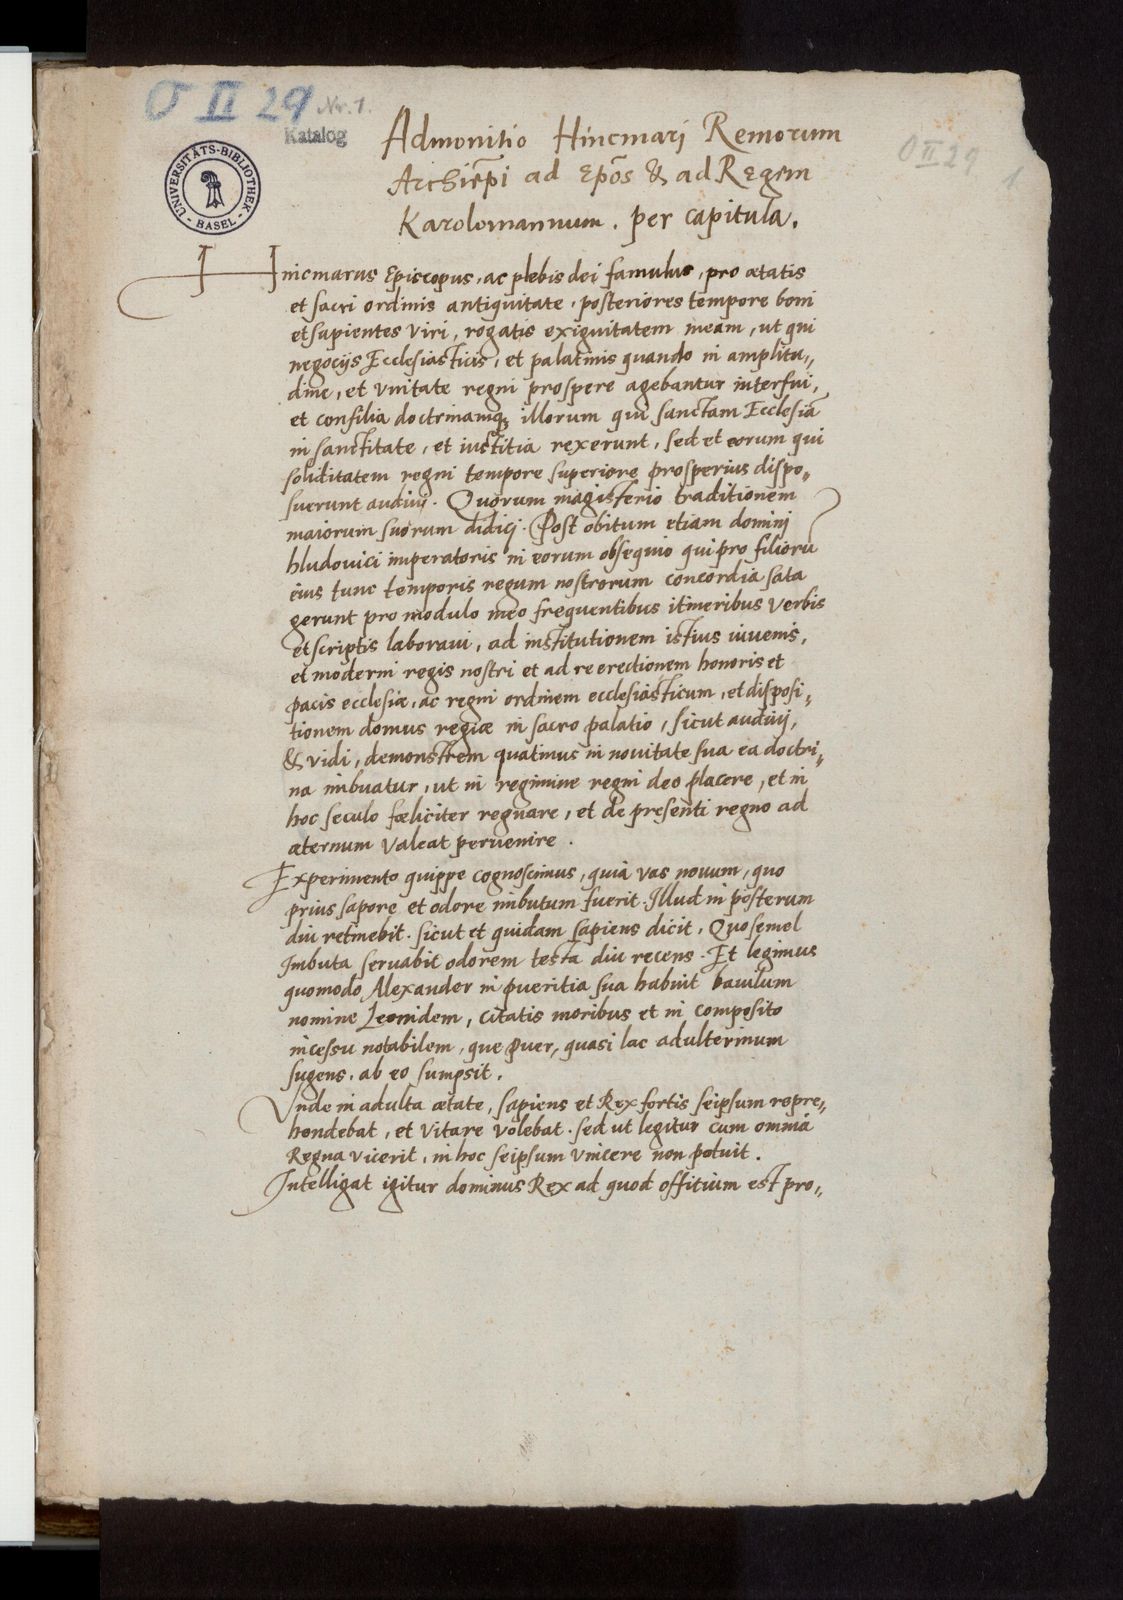 O II 29 Nr. 1.
Katalog
O II 29
1
UNIVERSITÄTS-BIBLIOTHEK
- BASEL -
Admonitio Hincmari Remorum
Archiēpi ad Epōs & ad Regem
Karolomannum. per capitula.
Hincmarus Episcopus, ac plebis dei famulus, pro ætatis
et sacri ordinis antiquitate, posteriores tempore boni
et sapientes viri, rogatis exiguitatem meam, ut qui
negocijs Ecclesiasticis, et palatinis quando in amplitu„
dine, et vnitate regni prospere agebantur interfui,
et consilia doctrinamq; illorum qui sanctam Ecclesiā
in sanctitate, et iustitia rexerunt, sed et eorum qui
soliditatem regni tempore superiore prosperius dispo„
suerunt audiuj. Quorum magisterio traditionem
maiorum suorum didicj. Post obitum etiam dominj
hludouici imperatoris in eorum obsequio qui pro filiorū
eius tunc temporis regum nostrorum concordia sata
gerunt pro modulo meo frequentibus itineribus verbis
et scriptis laboraui, ad institutionem istius iuuenis,
et moderni regis nostri et ad re erectionem honoris et
pacis ecclesiæ, ac regni ordinem ecclesiasticum, et disposi„
tionem domus regiæ in sacro palatio, sicut audiuj,
& vidi, demonstrem quatinus in nouitate sua ea doctri„
na imbuatur, ut in regimine regni deo placere, et in
hoc seculo fœliciter regnare, et de presenti regno ad
æternum valeat peruenire.
Experimento quippe cognoscimus, quia vas nouum, quo
prius sapore et odore imbutum fuerit. Illud in posterum
diu retinebit. sicut et quidam sapiens dicit, Quo semel
Imbuta seruabit odorem testa diu recens. Et legimus
quomodo Alexander in pueritia sua habuit baiulum
nomine Leonidem, citatis moribus et in composito
incessu notabilem, que puer, quasi lac adulterinum
sugens, ab eo sumpsit.
Vnde in adulta ætate, sapiens et Rex fortis seipsum repre„
hendebat, et vitare volebat. sed ut legitur cum omnia
Regna vicerit, in hoc seipsum vincere non potuit.
Intelligat igitur dominus Rex ad quod offitium est pro„